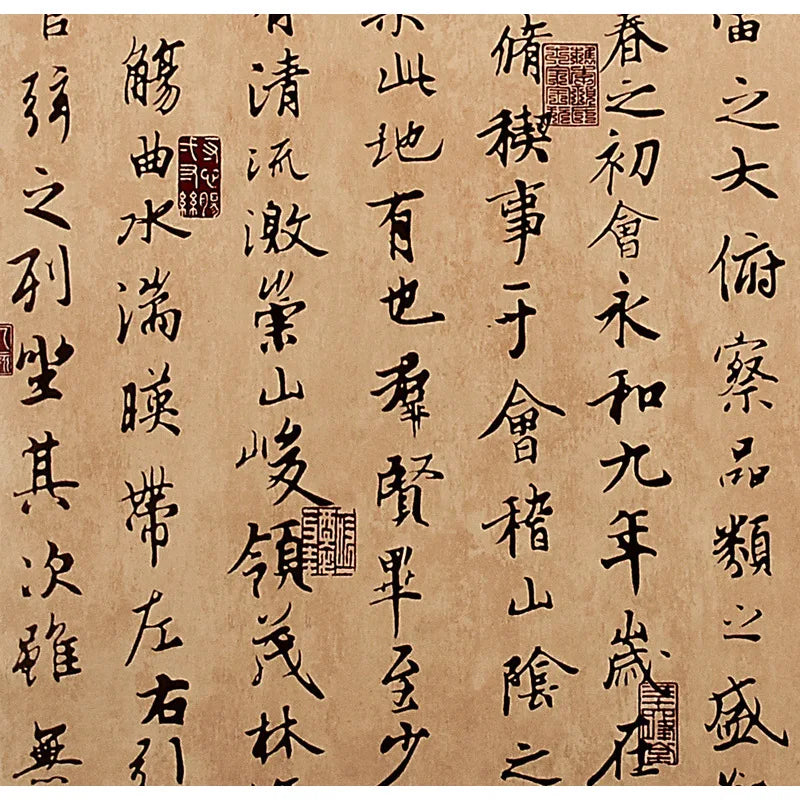 宙之大俯察品類之盛
春之初會永和九年歲在
脩禊事于會稽山陰之
此地有也羣賢畢至少
有清流激崇山峻領茂林
觴曲水湍暎帶左右引
弦之列坐其次雖無